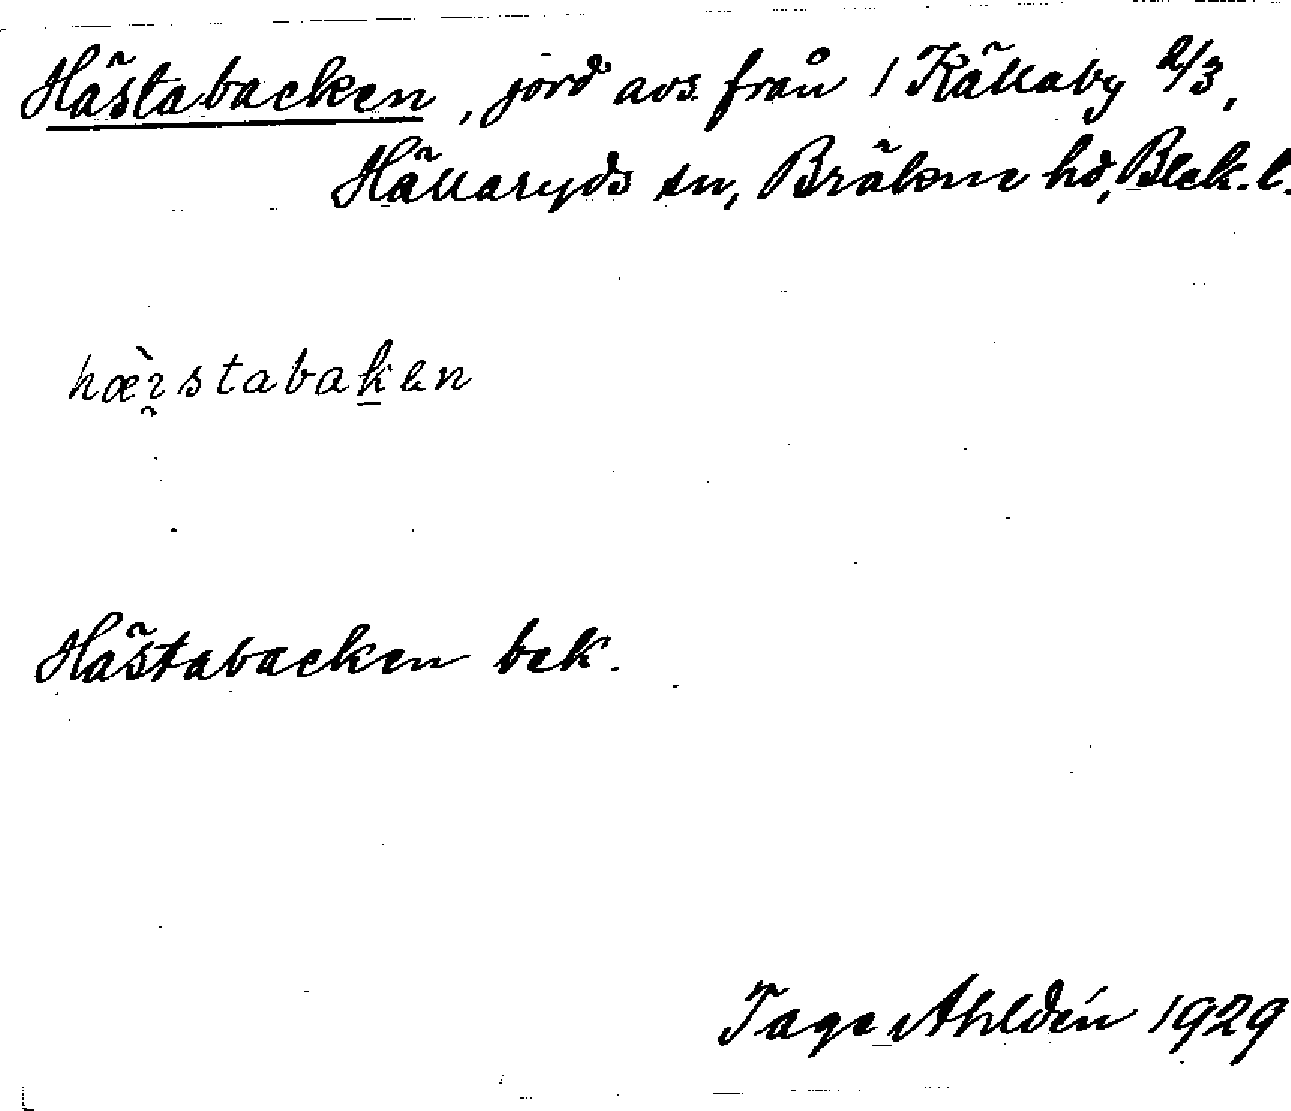 Hästabacken, jord avs. från 1 Källaby 2/3,
Hällaryds sn, Bräkne hd, Blek. l.
hæ̀ɪ̯stabak̠en
Hästabacken bek.
Tage Ahldén 1929